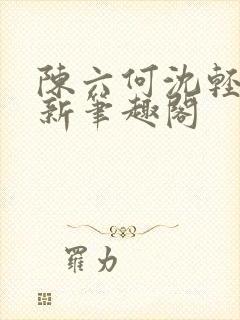 陳六何沈輕
新筆趣閣
羅力